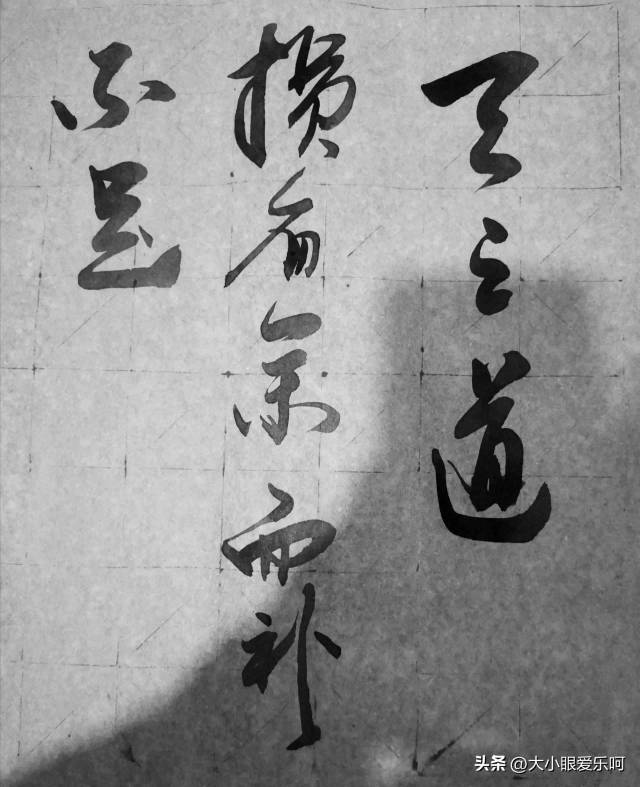 天之道
损有余而补
不足
头条 @大小眼爱乐呵